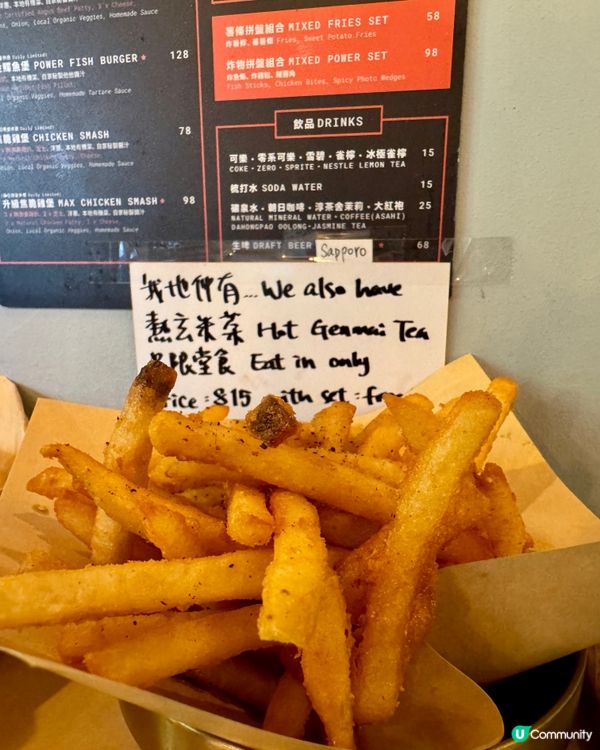 Certified Angus Beef Patty, 3 x Cheese,
Onion, Local Organic Veggies, Homemade Sauce
POWER FISH BURGER 128
炸魚塊、本地有機菜、自家秘製醬汁
Local Organic Veggies, Homemade Tartare Sauce
CHICKEN SMASH 78
Natural Chicken Patty, Cheese,
Onion, Local Organic Veggies, Homemade Sauce
(Daily Limited)
MAX CHICKEN SMASH 98
2 x Natural Chicken Patty, 3 x Cheese,
Onion, Local Organic Veggies, Homemade Sauce
薯條拼盤組合 MIXED FRIES SET 58
炸薯條、蕃薯條 Fries, Sweet Potato Fries
炸物拼盤組合 MIXED POWER SET 98
Fish Sticks, Chicken Bites, Spicy Photo Wedges
飲品 DRINKS
可樂・零系可樂・雪碧・雀檸・冰極雀檸 15
COKE・ZERO・SPRITE・NESTLE LEMON TEA
梳打水 SODA WATER 15
礦泉水・朝日咖啡・淳茶舍茉莉・大紅袍 25
NATURAL MINERAL WATER・COFFEE(ASAHI)
DAHONGPAO OOLONG・JASMINE TEA
生啤 DRAFT BEER Sapporo 68
我地仲有...We also have
熱玄米茶 Hot Genmai Tea
限堂食 Eat in only
ice : $15 ith set : f
U Community